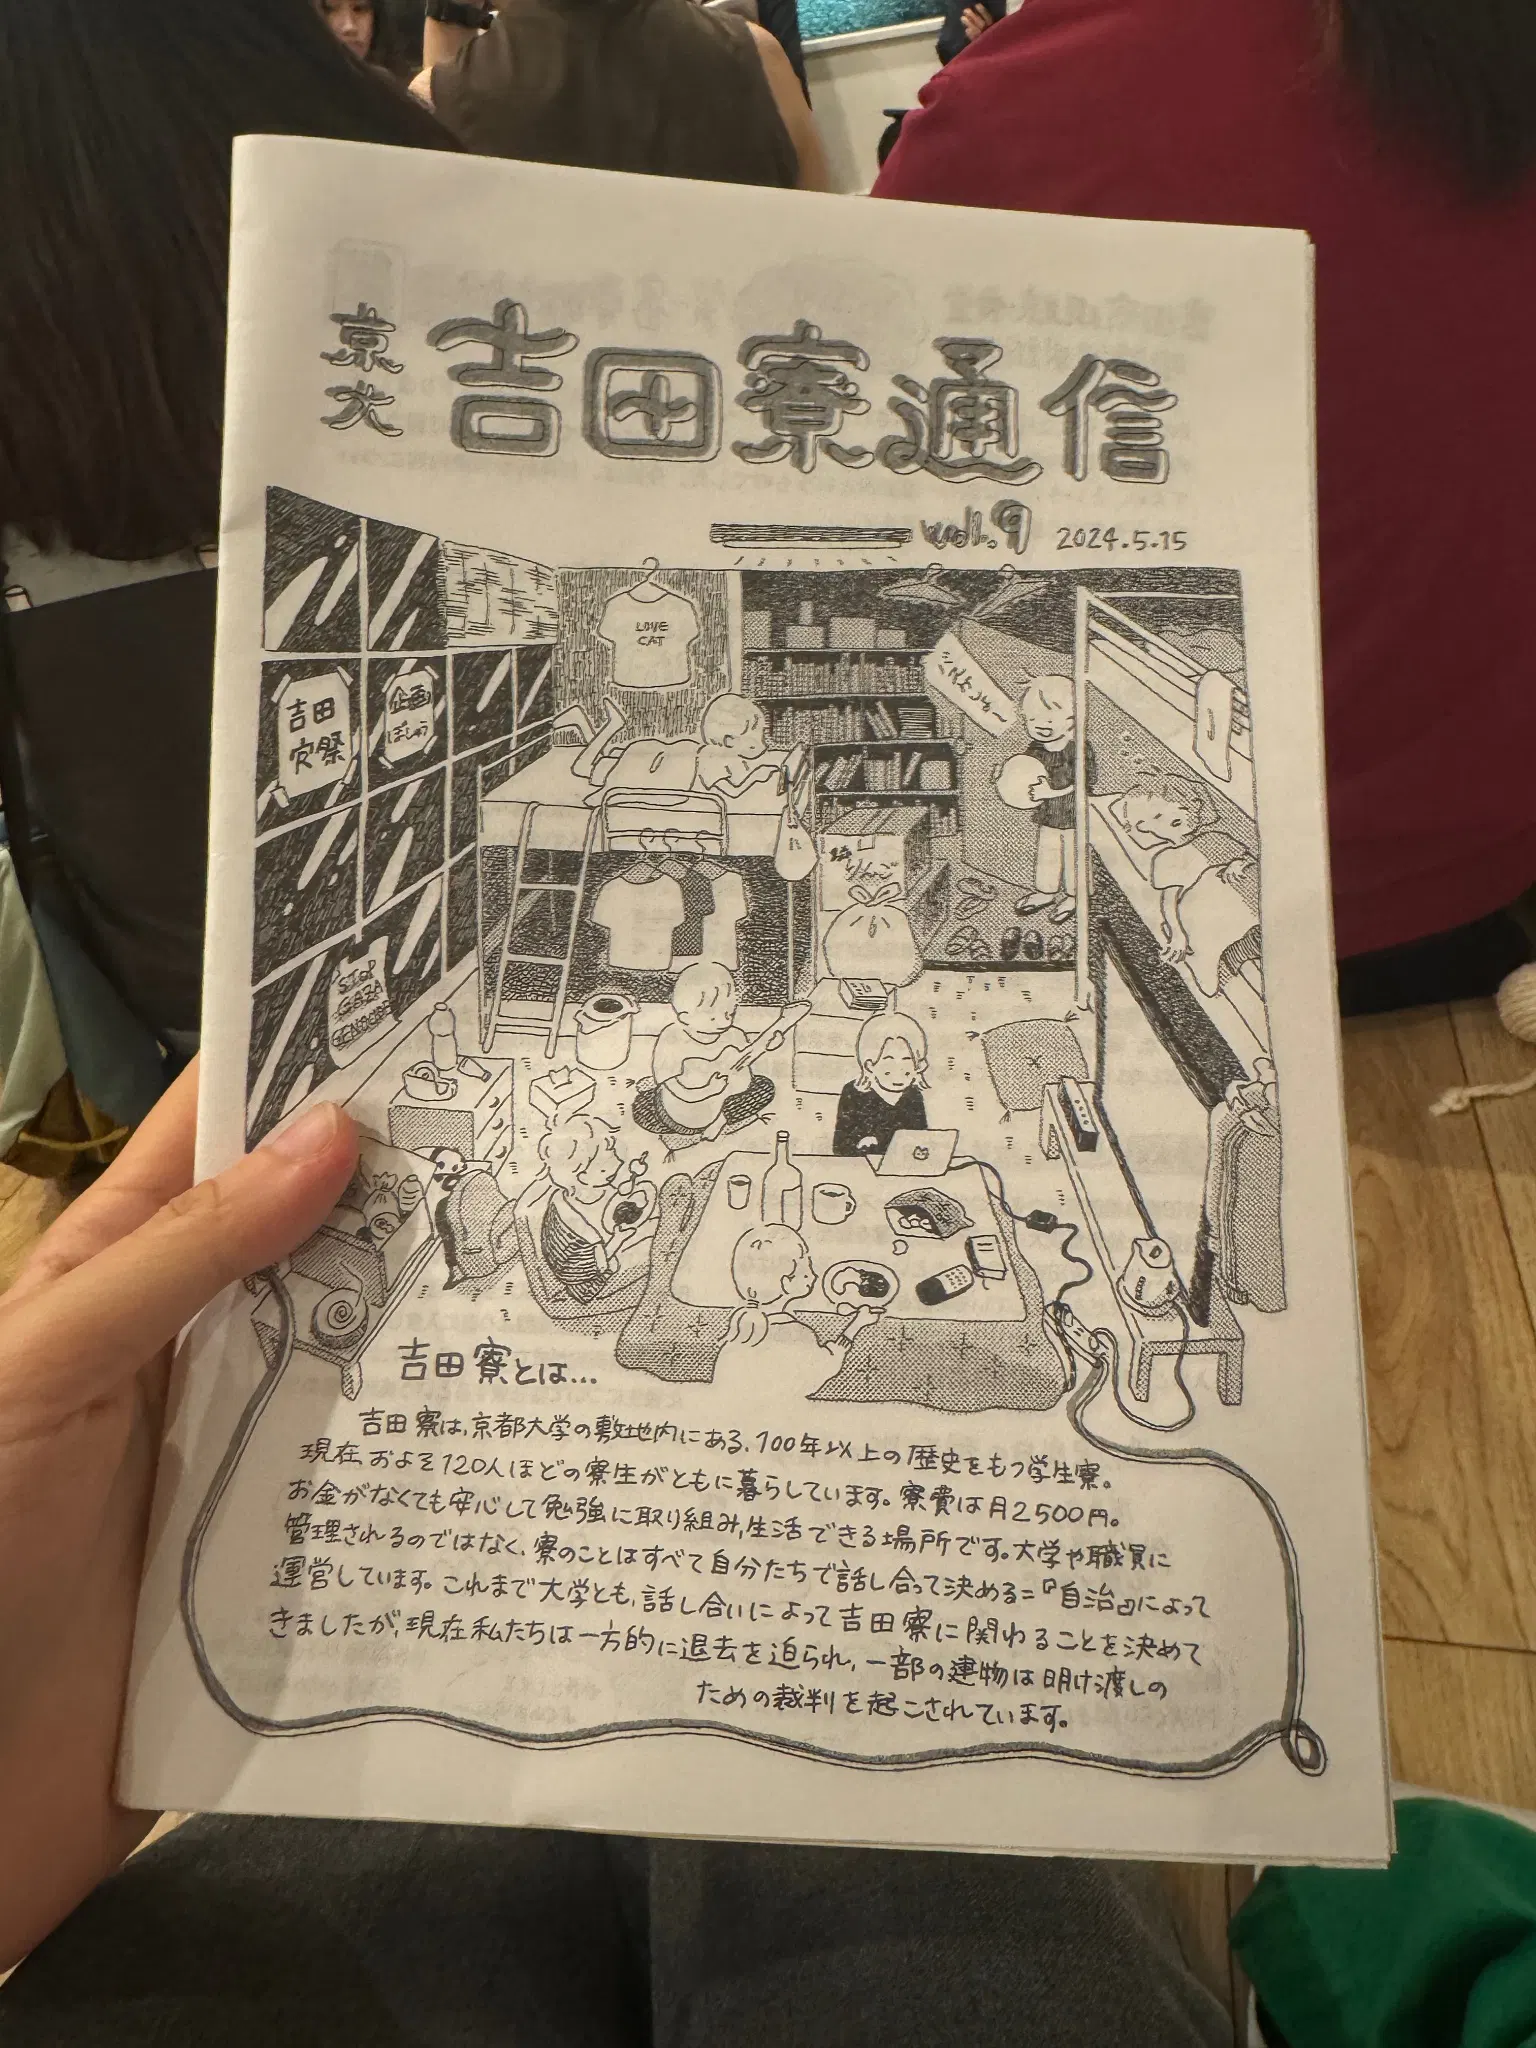 京大
吉田寮通信
vol.9 2024.5.15
LOVE
CAT
吉田
寮祭
企画
ぼしゅう
STOP
GAZA
GENOCIDE
りんご
吉田寮とは…
吉田寮は、京都大学の敷地内にある、100年以上の歴史をもつ学生寮。
現在、およそ120人ほどの寮生がともに暮らしています。寮費は月2500円。
お金がなくても安心して勉強に取り組み、生活できる場所です。大学や職員に
管理されるのではなく、寮のことはすべて自分たちで話し合って決める=『自治』によって
運営しています。これまで大学とも、話し合いによって吉田寮に関わることを決めて
きましたが、現在私たちは一方的に退去を迫られ、一部の建物は明け渡しの
ための裁判を起こされています。